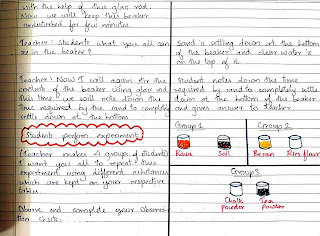 with the help of this glass rod.
Now we will keep this beaker
undisturbed for few minutes.
Teacher: Students what you all can
see in the beaker?
Sand is settling down at the bottom
of the beaker and clear water is
on the top of it.
Teacher: Now I will again stir the
content of the beaker using glass rod
This time we will note down the
time required by the sand to completely
settle down at the bottom.
Student notes down the time
required by sand to completely settle
down at the bottom of the beaker
and gives answer to teacher.
Students perform experiment
(Teacher makes 4 groups of students)
I want you all to repeat this
experiment using different substances
which are kept on your respective
tables
Observe and complete your observa-
tion chart.
Group 1
Rava
Soil
Group 2
Besan
Rice flour
Group 3
Chalk
powder
Tea
Powder